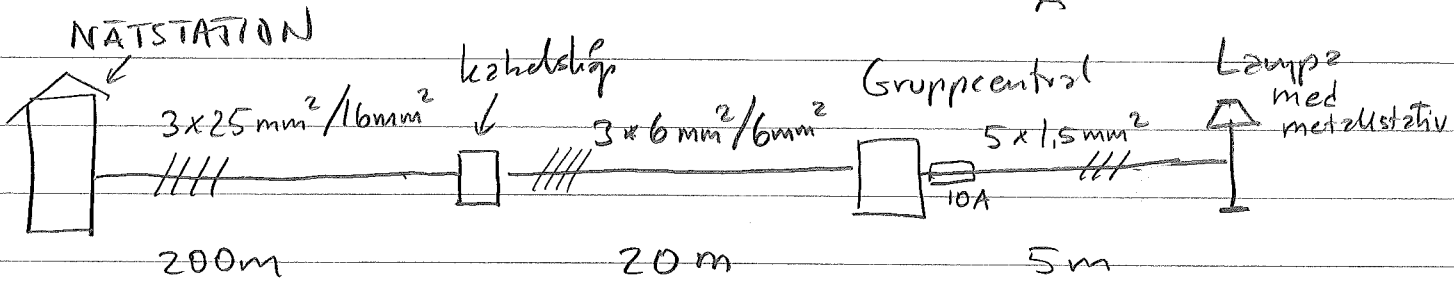 NÄTSTATION
kabelskåp
Gruppcentral
Lampa
med
metallstativ
3x25mm²/16mm²
3x6mm²/6mm²
5x1,5mm²
10A
200m
20m
5m